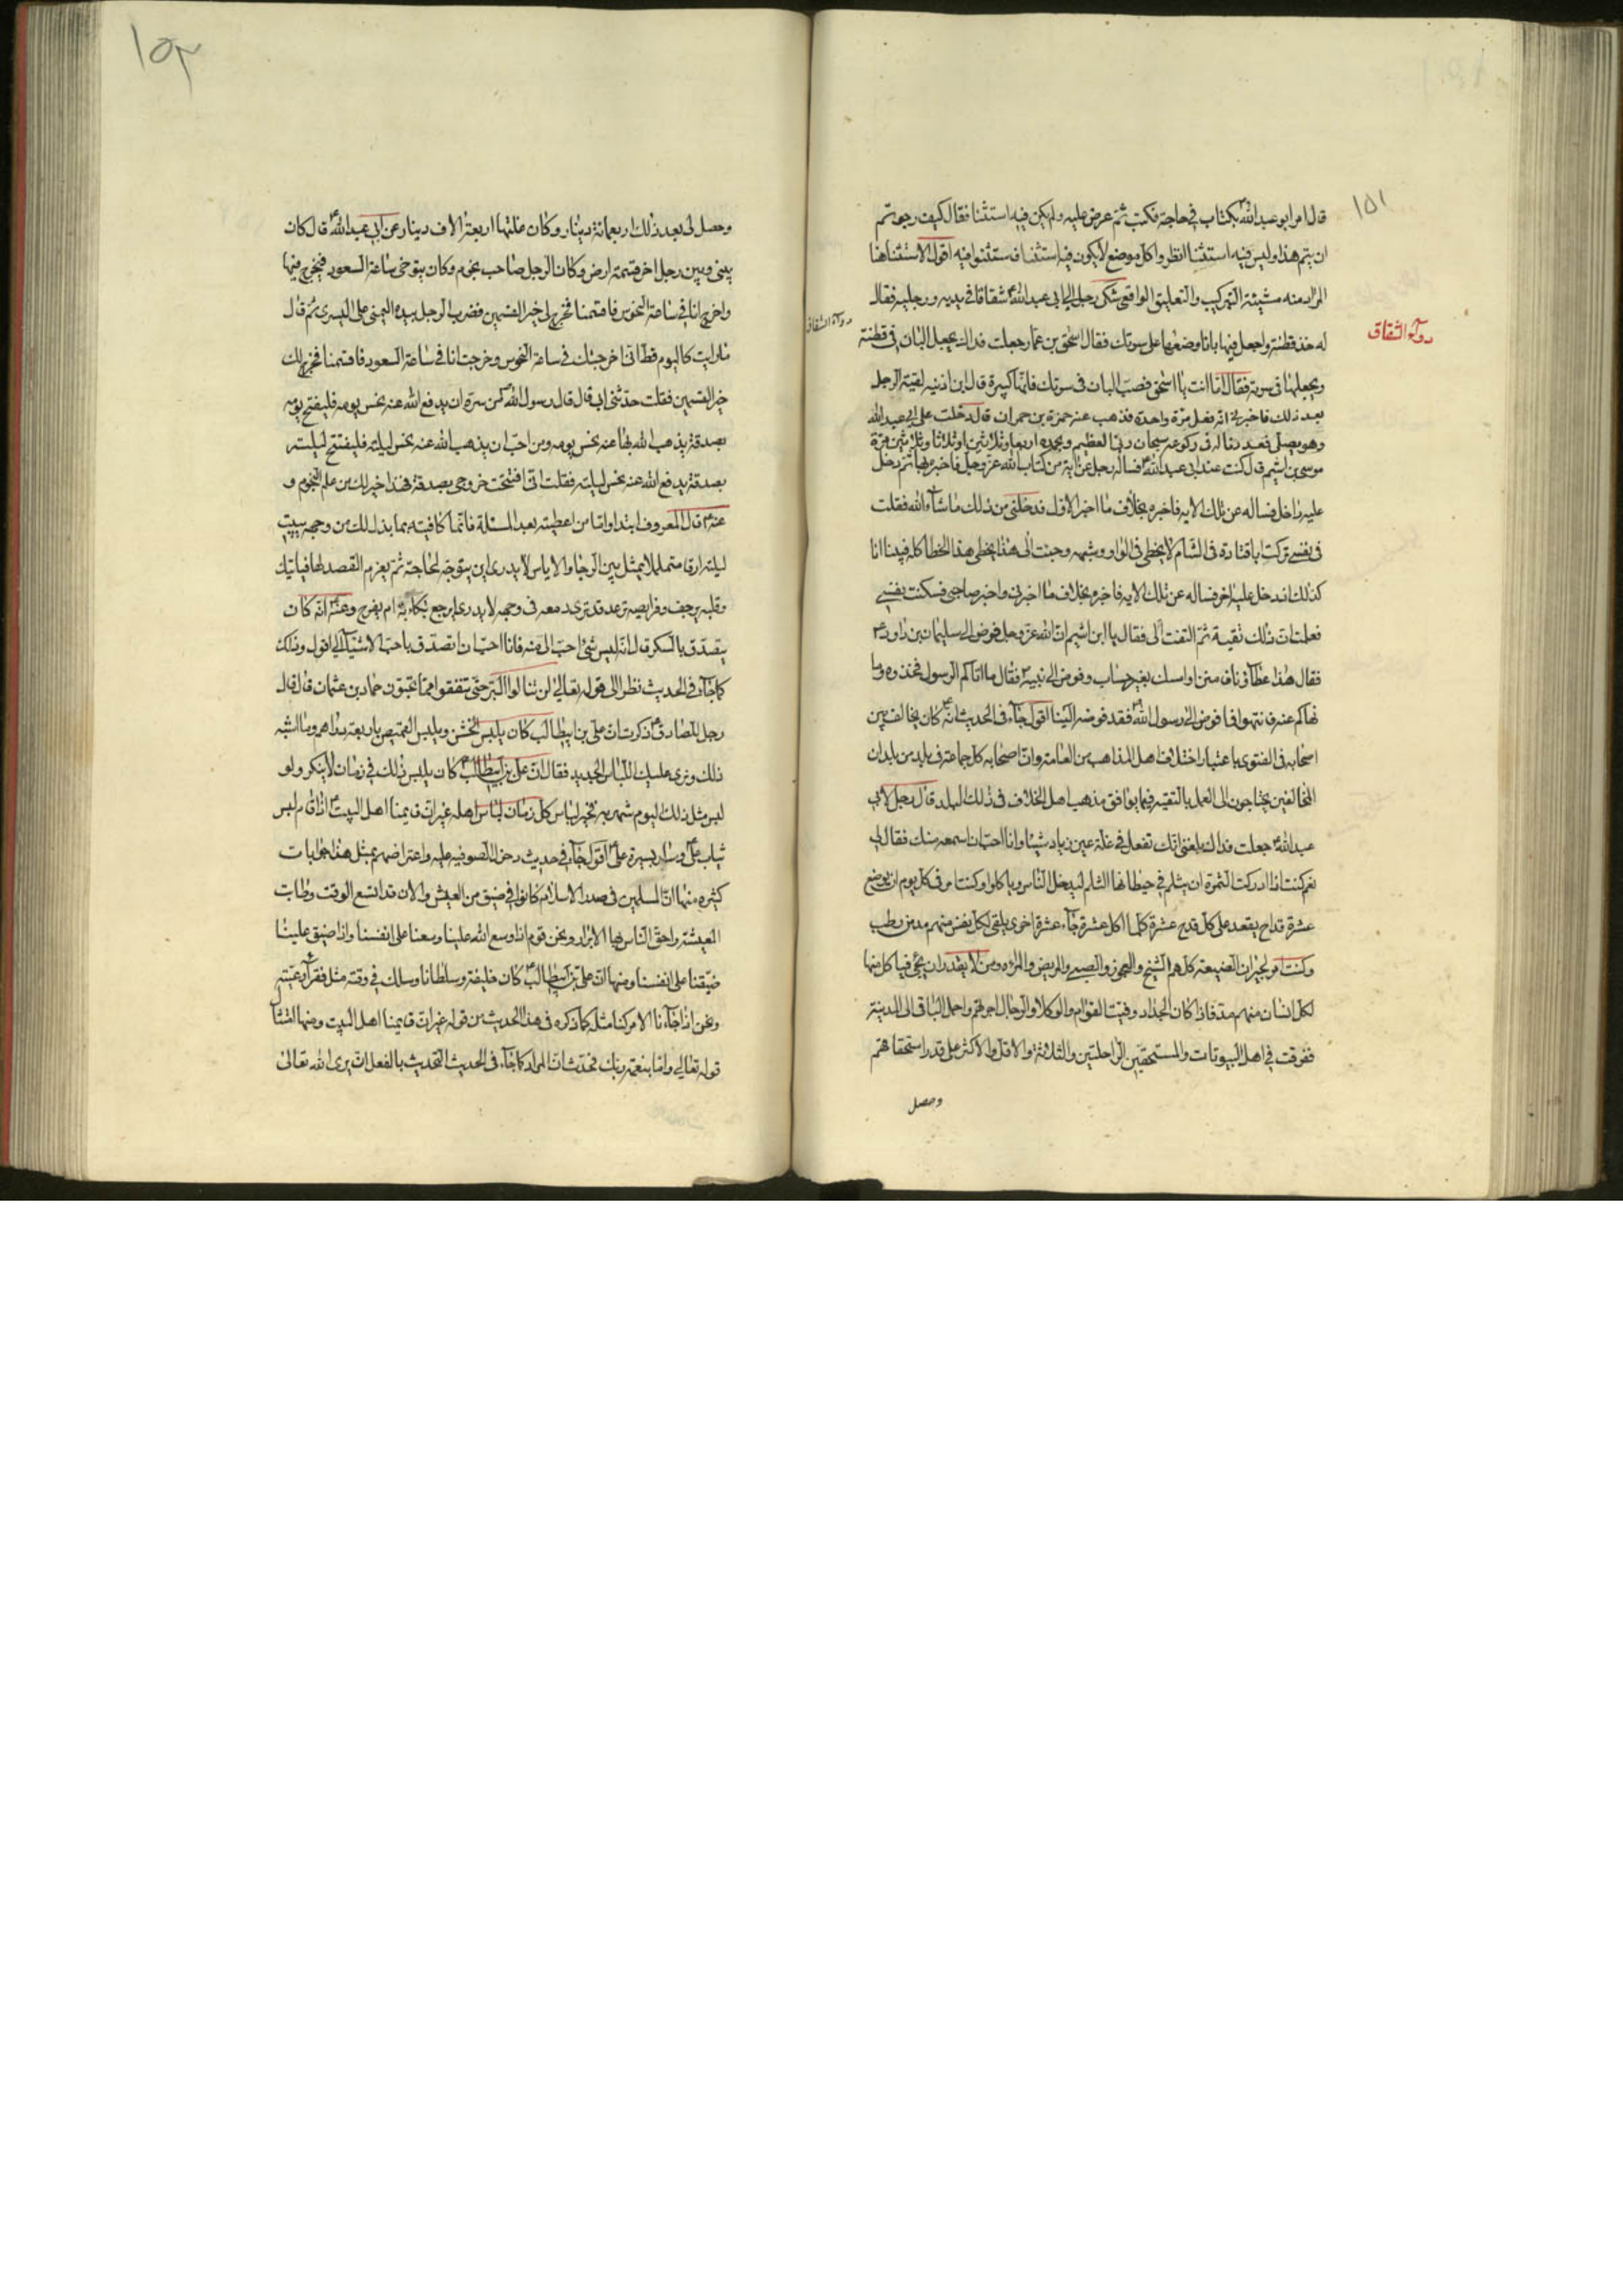 ١٥١
قال امر ابو عبد الله بكتاب في حاجة فكتب ثم عرض عليه ولم يكن فيه استثنا فقال كيف رجوتم
ان يتم هذا وليس فيه استثنا انظروا كل موضع لا يكون فيه استثنا فاستثنوا فيه اقول الاستثنا هنا
المراد منه مشيئة التبرك والتعليق الواقعي شكى رجل الى ابي عبد الله شقاقا في يديه ورجليه فقال
له خذ قطنة واجعل فيها بانا وضعها على سرتك فقال اسحق بن عمار جعلت فداك يجعل البان في قطنة
دوآء الشقاق
دوآء الشقاق
ويجعلها في سرته فقال اما انت يا اسحق فصب البان في سرتك فانها كبيرة قال ابن اذينه لقيت الرجل
بعد ذلك فاخبرني انه فعل مرة واحدة فذهب عنه حمزة بن حمران قال دخلت على ابي عبد الله
وهو يصلي فعدد له في ركوعه سبحان ربي العظيم وبحمده اربعا وثلاثين او ثلاثا وثلاثين مرة
موسى بن اشيم قال كنت عند ابي عبد الله فساله رجل عن اية من كتاب الله عز وجل فاخبره بها ثم دخل
عليه داخل فساله عن تلك الايه فاخبره بخلاف ما اخبر الاول فدخلني من ذلك ما شآء الله فقلت
في نفسي تركت ابا قتادة في الشام لا يخطي في الواو وشبهه وجئت الى هذا يخطي هذا الخطا كله فبينا انا
كذلك اذ دخل عليه اخر فساله عن تلك الايه فاخبره بخلاف ما اخبرني واخبر صاحبي فسكنت نفسي
فعلمت ان ذلك تقية ثم التفت الي فقال يا ابن اشيم ان الله عز وجل فوض الى سليمان بن داود
فقال هذا عطآؤنا فامنن او امسك بغير حساب وفوض الى نبيه فقال ما اتاكم الرسول فخذوه وما
نهاكم عنه فانتهوا فما فوض الى رسول الله فقد فوضه الينا اقول جآء في الحديث انه كان يخالف بين
اصحابه في الفتوى باعتبار اختلاف اهل المذاهب من العامة وان اصحابه كل جماعة في بلد من بلدان
المخالفين يحتاجون الى العمل بالتقية فيما يوافق مذهب اهل الخلاف في ذلك البلد قال رجل لابي
عبد الله جعلت فداك بلغني انك تفعل في غلة عين زياد شيئا وانا احب ان اسمعه منك فقال لي
نعم كنت اذا ادركت الثمرة ان يثلم في حيطانها الثلم ليدخل الناس وياكلوا وكنت امر في كل يوم ان يوضع
عشرة قداح يقعد على كل قدح عشرة كلما اكل عشرة جآء عشرة اخرى يلقى لكل نفس منهم مد من رطب
وكنت امر لجيران الضيعة كلهم الشيخ والعجوز والصبي والمريض والمرءه ومن لا يقدر ان يجي فياكل منها
لكل انسان منهم مد فاذا كان الجذاذ وفيت القوام والوكلا والرجال اجرتهم واحمل الباقي الى المدينة
ففرقت في اهل البيوتات والمستحقين الراحلتين والثلاثة والاقل والاكثر على قدر استحقاقهم
وحصل
١٥٢
وحصل لي بعد ذلك اربعمائة دينار وكان غلتها اربعة الاف دينار عن ابي عبد الله قال كان
بيني وبين رجل اخر قسمة ارض وكان الرجل صاحب نجوم وكان يتوخى ساعة السعود فيخرج فيها
واخرج انا في ساعة النحوس فاقتسمنا فخرج لي خير القسمين فضرب الرجل بيده اليمنى على اليسرى ثم قال
ما رايت كاليوم قط اني اخرجتك في ساعة النحوس وخرجت انا في ساعة السعود فاقتسمنا فخرج لك
خير القسمين فقلت حدثني ابي قال قال رسول الله من سره ان يدفع الله عنه نحس يومه فليفتتح يومه
بصدقة يذهب الله بها عنه نحس يومه ومن احب ان يذهب الله عنه نحس ليلته فليفتتح ليلته
بصدقة يدفع الله عنه نحس ليلته فقلت اني افتتحت خروجي بصدقة فهذا خير لك من علم النجوم و
عنه قال المعروف ابتدا واما من اعطيته بعد المسئلة فانما كافيته بما بذل لك من وجهه يبيت
ليلته ارقا متململا يمثل بين الرجا والاياس لا يدري اين يتوجه لحاجته ثم يعزم القصد لها فياتيك
وقلبه يرجف وفرايصه ترعد قد ترى دمه في وجهه لا يدري ايرجع بكابه ام بفرح وعنه انه كان
يتصدق بالسكر قال انه ليس شئ احب الي منه فانا احب ان اتصدق باحب الاشيآء الي اقول وذلك
كما جآء في الحديث نظرا الى قوله تعالى لن تنالوا البر حتى تنفقوا مما تحبون حماد بن عثمان قال قال
رجل للصادق ذكرت ان علي بن ابيطالب كان يلبس الخشن ويلبس القميص باربعة دراهم وما اشبه
ذلك ونرى عليك اللباس الجديد فقال ان علي بن ابيطالب كان يلبس ذلك في زمان لا ينكر ولو
لبس مثل ذلك اليوم شهر به فخير لباس كل زمان لباس اهله غير ان قايمنا اهل البيت اذا قام لبس
ثياب علي وسار بسيرة علي اقول جآء في حديث دخول الصوفيه عليه واعتراضهم بمثل هذا جوابات
كثيره منها ان المسلمين في صدر الاسلام كانوا في ضيق من العيش والان قد اتسع الوقت وطابت
المعيشة واحق الناس بها الابرار ونحن قوم اذا وسع الله علينا وسعنا على انفسنا واذا ضيق علينا
ضيقنا على انفسنا ومنها ان علي بن ابيطالب كان خليفة وسلطانا وسلك في وقته مثل فقرآء رعيته
ونحن اذا جآءنا الامر كنا مثله كما ذكره في هذا الحديث من قوله غير ان قايمنا اهل البيت ومنها
قوله تعالى واما بنعمة ربك فحدث ان المراد كما جآء في الحديث التحديث بالفعل ان يرى الله تعالى